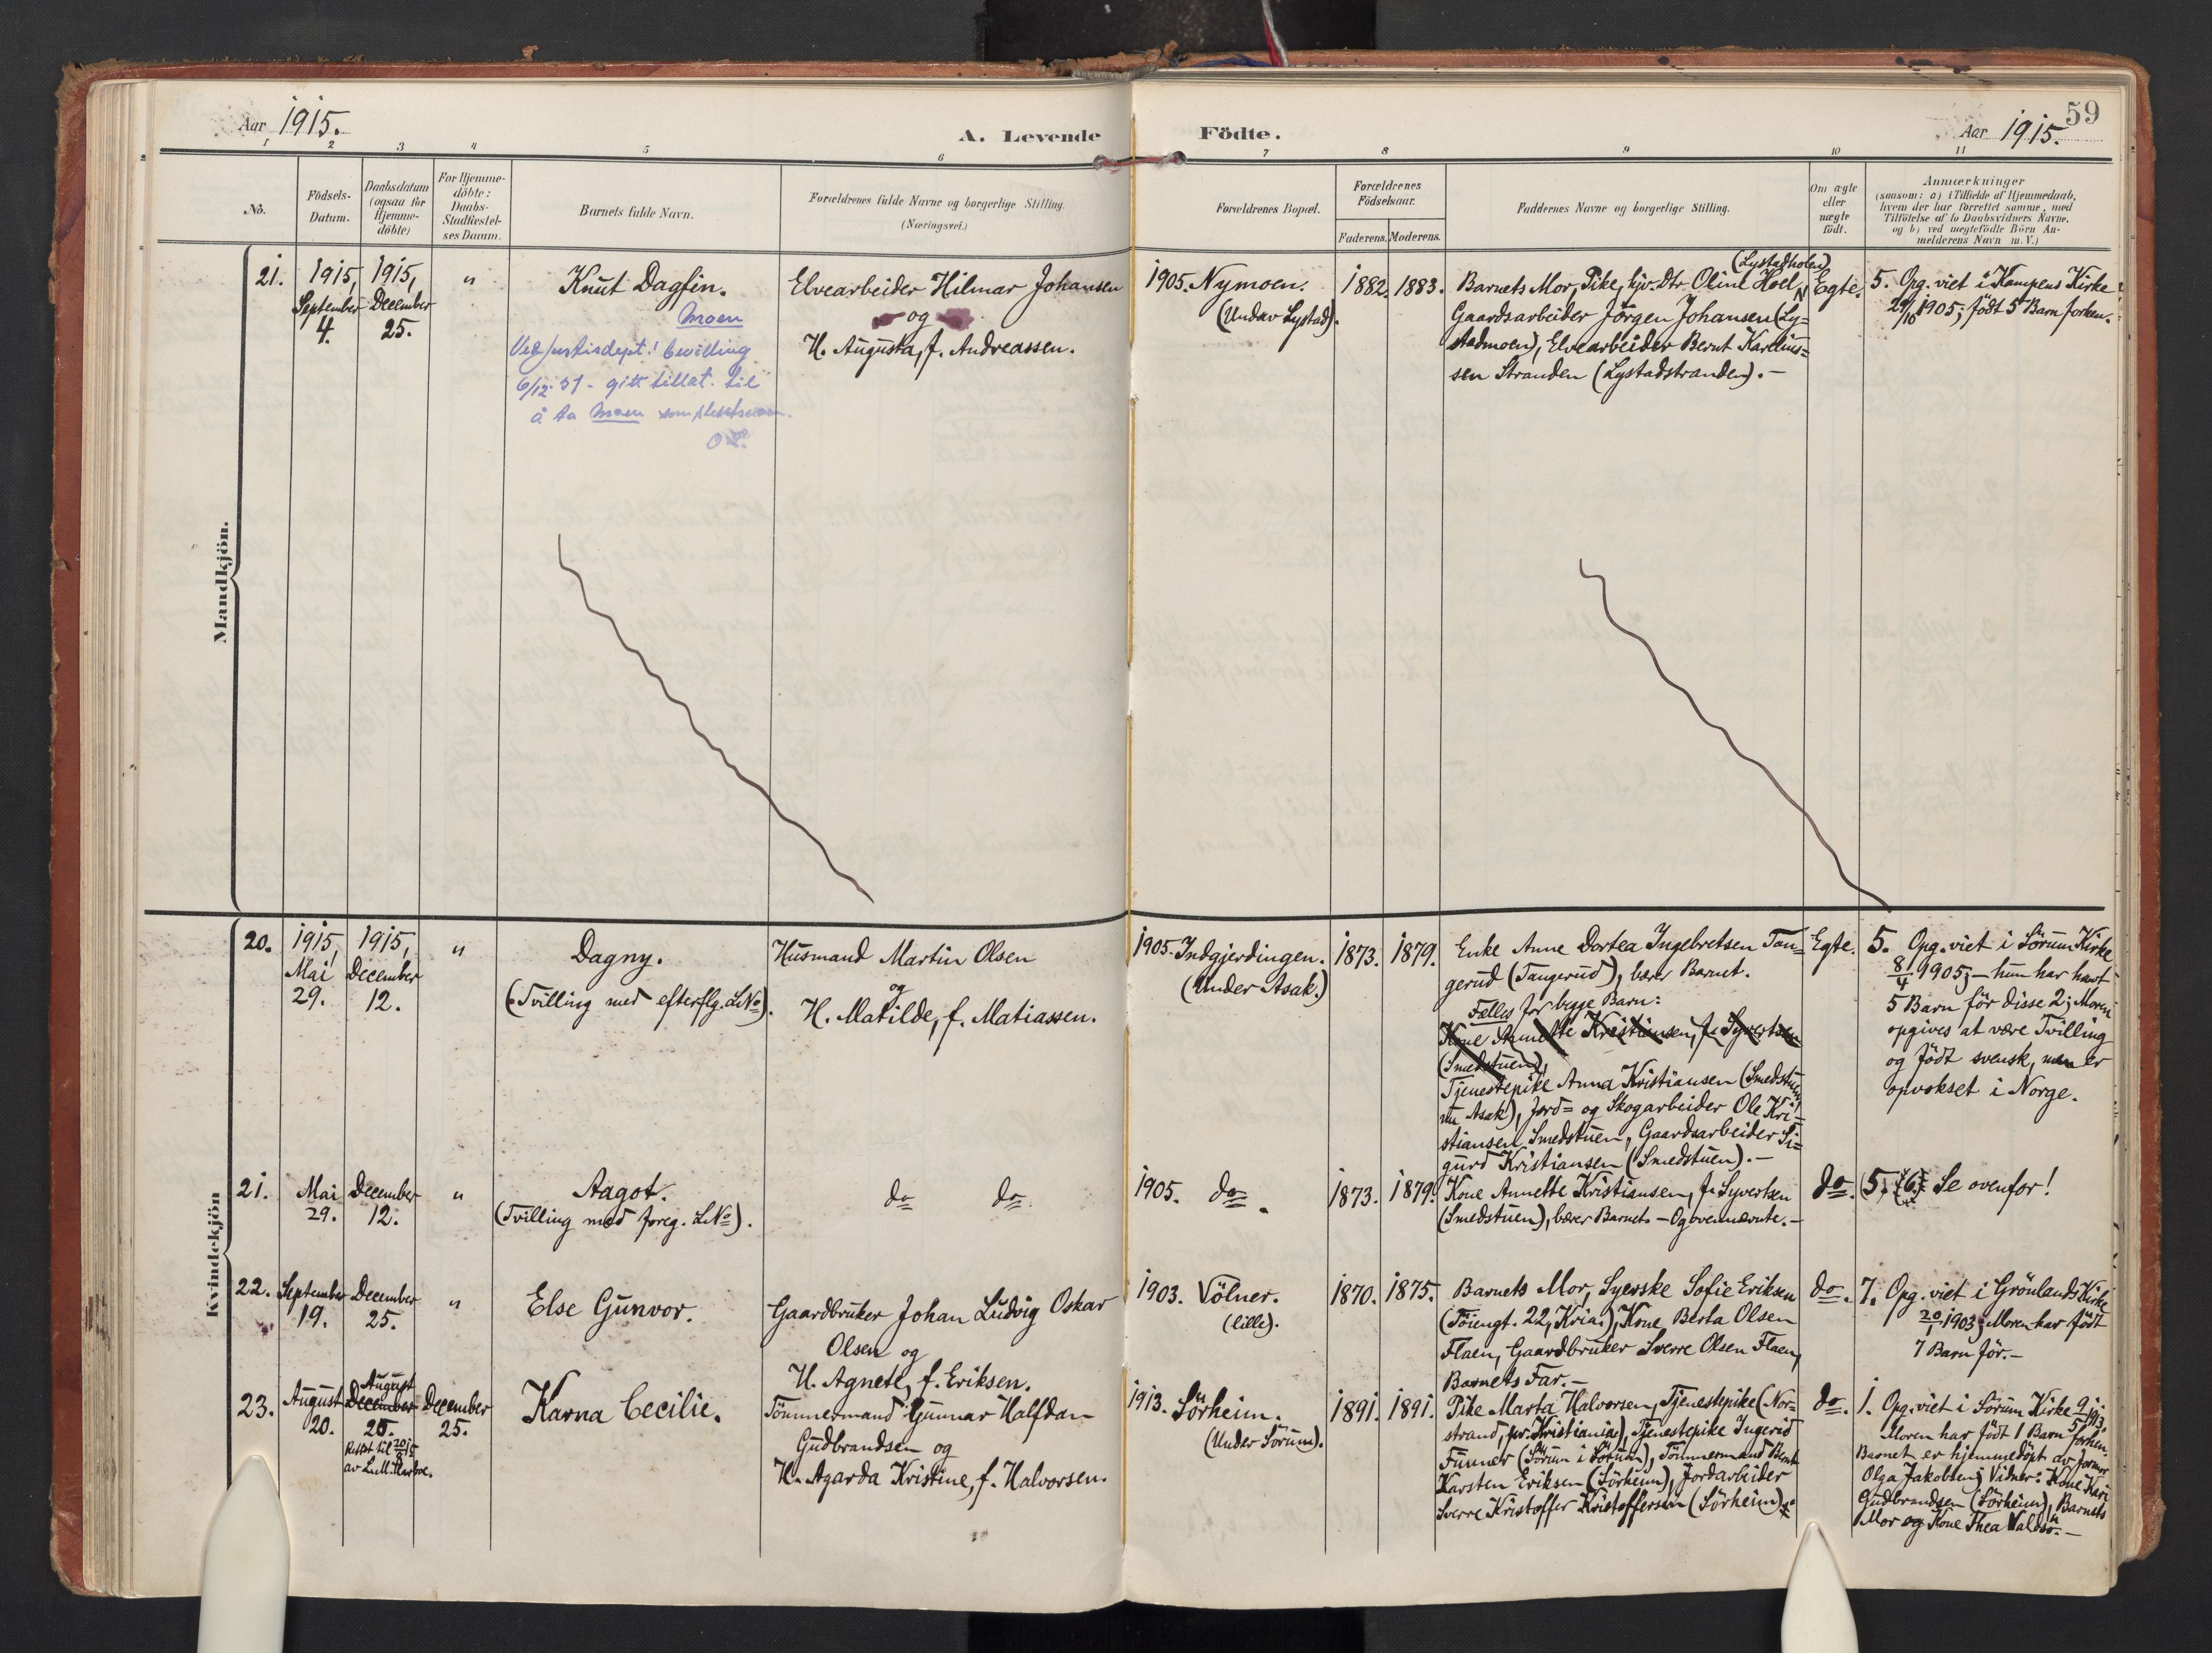 Aar 1915.
A. Levende
Födte.
Aar 1915.
59
1 2 3 4 5 6 7 8 9 10 11
No.
Födsels-
Datum.
Daabsdatum
(ogsaa for
Hjemme-
döbte)
For Hjemme-
döbte:
Daabs-
Stadfæstel-
ses Datum.
Barnets fulde Navn.
Forældrenes fulde Navne og borgerlige Stilling.
(Næringsvei.)
Forældrenes Bopæl.
Forældrenes
Födselsaar.
Faderens. Moderens.
Faddernes Navne og borgerlige Stilling.
Om ægte
eller
uægte
födt.
Anmærkninger
(saasom: a) i Tilfælde af Hjemmedaab,
hvem der har forrettet samme, med
Tilföielse af to Daabsvidners Navne,
og b) ved uegtefödte Börn An-
melderens Navn m. V.)
Mandkjön.
21.
1915,
September
4.
1915,
December
25.
"
Knut Dagfin.
Moen
Ved Justisdept.! bevilling
6/12-31 - gitt tillat. til
å ta Moen som slektsnavn.
Elvearbeider Hilmar Johansen
og
H. Augusta, f. Andreassen.
1905. Nymoen.
(Under Lystad).
1882. 1883.
(Lystadholen)
Barnets Mor, Pike, hjv. Dtr. Oline Hoel,
Gaardsarbeider Jörgen Johansen (Ly=
stadmoen), Elvearbeider Bernt Karelius=
sen Stranden (Lystadstranden).-
Egte.
5. Opg. viet i Kampens Kirke
29/10 1905; födt 5 Barn forhen.
Kvindekjön
20.
1915,
Mai
29.
1915,
December
12.
"
Dagny.
(Tvilling med efterflg. LNo).
Husmand Martin Olsen
og
H. Matilde, f. Matiassen.
1905. Indgjerdingen.
(Under Asak.)
1873. 1879.
Enke Anne Dortea Ingebretsen Tan=
gerud (Tangerud), bærer Barnet.
Fælles for begge Barn:
Kone Annette Kristiansen, f. Syvertsen
(Smedstuen),
Tjenestepike Anna Kristiansen (Smedstuen,
u. Asak), Jord= og Skogarbeider Ole Kri=
stiansen Smedstuen, Gaardsarbeider Si=
gurd Kristiansen (Smedstuen).-
Egte.
5. Opg. viet i Sörum Kirke
8/4 1905; - hun har havt
5 Barn för disse 2; Moren
opgives at være Tvilling
og födt svensk, men er
opvokset i Norge.
21.
Mai
29.
December
12.
"
Aagot.
(Tvilling med foreg. LNo).
do do
1905. do.
1873. 1879.
Kone Annette Kristiansen, f. Syvertsen
(Smedstuen), bærer Barnet. - Og ovennævnte.-
do.
5, (6). Se ovenfor!
22.
September
19.
December
25.
"
Else Gunvor.
Gaardbruker Johan Ludvig Oskar
Olsen og
H. Agnete, f. Eriksen.
1903. Völner.
(lille).
1870. 1875.
Barnets Mor, Syerske Sofie Eriksen
(Töiengt. 22, Kria.), Kone Berta Olsen
Flaen, Gaardbruker Sverre Olsen Flaen,
Barnets Far.-
do.
7. Opg. viet i Grönlands Kirke
20/1 1903; Moren har födt
7 Barn för.-
23.
August
20.
August
December
25.
Rettet til 20/8 15
December
25.
Karna Cecilie.
Tömmermand Gunnar Halfdan
Gudbrandsen og
H. Agarda Kristine, f. Halvorsen.
1913. Sörheim.
(Under Sörum).
1891. 1891.
Pike Marta Halvorsen, Tjenestepike (Nor=
strand, pr. Kristiania), Tjenestepike Ingerid
Funner (Sörum i Sörum), Tömmermand Bernt
Karsten Eriksen (Sörheim), Jordarbeider
Sverre Kristoffer Kristoffersen (Sörheim).
do.
1. Opg. viet i Sörum Kirke 9/5 1913.
Moren har födt 1 Barn forhen.
Barnet er hjemmedöpt av Jormor
Olga Jakobsen; Vidner: Kone Kari
Gudbrandsen (Sörheim), Barnets
Mor og Kone Thea Valdsö.-